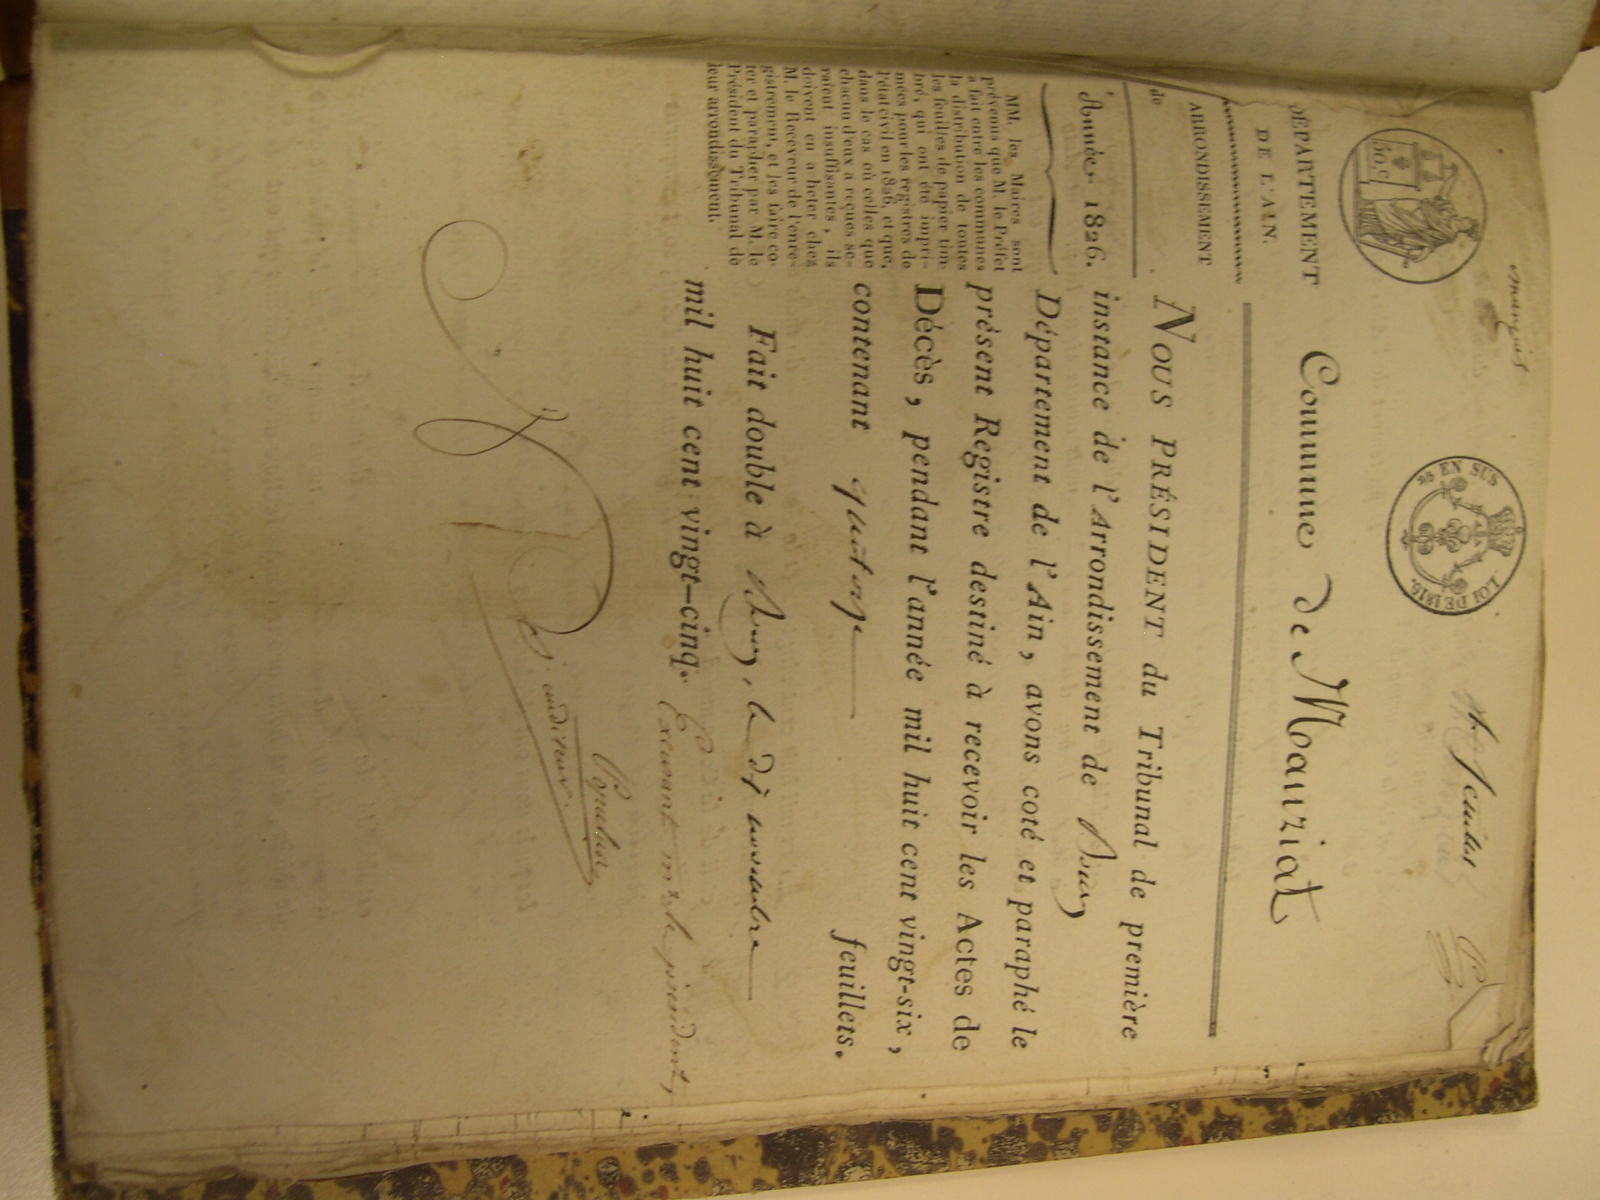 1er feuillet
50. C.
25 EN SUS LOI DE 1816.
DÉPARTEMENT
DE L'AIN.
ARRONDISSEMENT
de
Année 1826.
MM. les Maires sont
prévenus que M. le Préfet
a fait entre les communes
la distribution de toutes
les feuilles de papier tim-
bré, qui ont été impri-
mées pour les registres de
l'état civil en 1826, et que,
dans le cas où celles que
chacun d'eux a reçues se-
raient insuffisantes, ils
doivent en acheter chez
M. le Receveur de l'enre-
gistrement, et les faire co-
ter et parapher par M. le
Président du Tribunal de
leur arrondissement.
Commune de Moanziat
NOUS PRÉSIDENT du Tribunal de première
instance de l'Arrondissement de Bourg
Département de l'Ain, avons coté et paraphé le
présent Registre destiné à recevoir les Actes de
Décès, pendant l'année mil huit cent vingt-six,
contenant quatorze feuillets.
Fait double à Bourg, le dix novembre
mil huit cent vingt-cinq. Excusant mr le président,
Populus
j. auditeur.